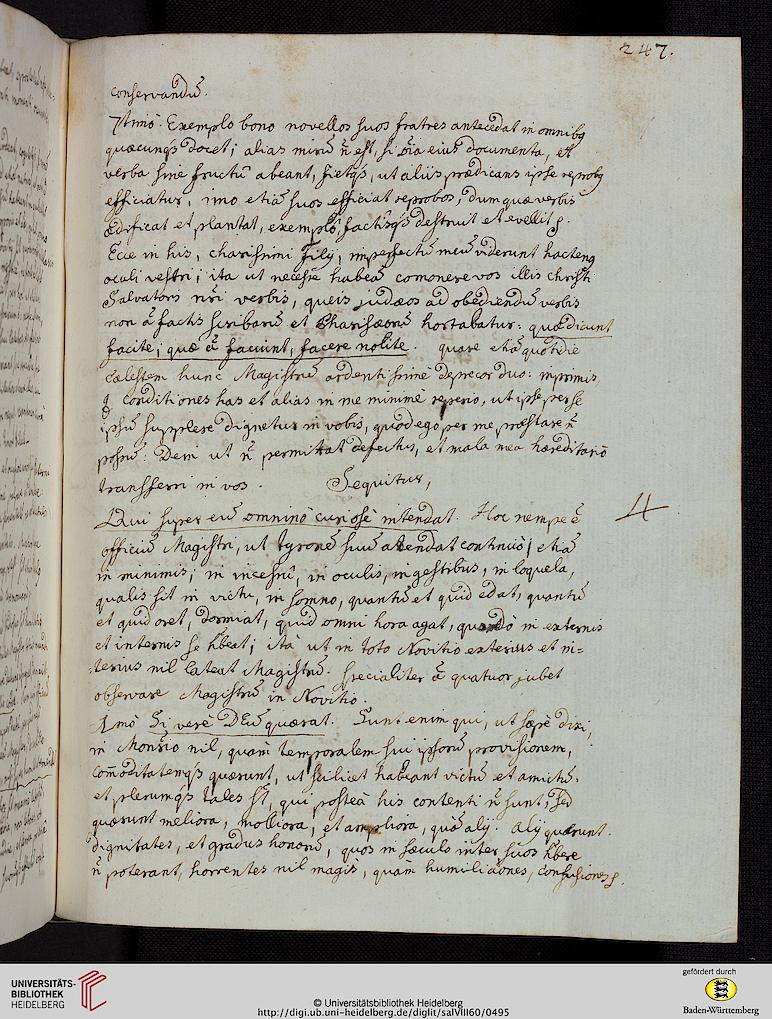 247.
conservandū.
7timò. Exemplo bono novellos suos fratres antecedat in omnibq
quæcunqs docet; alias mirū n̄ est, si oīa eius documenta, et
verba sine fructū abeant, fietqs, ut aliis prædicans ipse reprobq
efficiatur, imo etiā suos efficiat reprobos, dum quæ verbis
ædificat et plantat, exemplō, factisqs destruit et evellit
Ecce in his, charissimi Filij, imperfectū meū viderunt hactenq
oculi vestri; ita ut necesse habeā com̄onere vos illis Christi
Salvatoris nr̄i verbis, queis judæos ad obediendū verbis
non ā factis scribarū et Pharisæorū hortabatur: quæ dicunt
facite; quæ ā faciunt, facere nolite. quare etiā quotidie
cælestem hunc Magistrū ardentissimè deprecor duo: inprimis
conditiones has et alias in me minimè reperio, ut ipse per se
ipsū supplere dignetur in vobis, quod ego per me præstare n̄
possū: Dein ut n̄ permittat defectus, et mala mea hæreditariò
transferri in vos. Sequitur,
Qui super eū omninò curiosè intendat. Hoc nempe ē
officiū Magistri, ut tyronē suū attendat continuò; etiā
in minimis; in incessū, in oculis, in gestibus, in loquela,
qualis sit in victu, in somno, quantū et quid edat, quantū
et quid oret, dormiat, quid omni hora agat, quando in externis
et internis se hbeat; ita ut in toto Novitio exterius et in=
=terius nil lateat Magistrū. specialiter ā quatuor jubet
observare Magistrū in Novitio.
1mò Si verè DEū quærat. Sunt enim qui, ut sæpè dixi,
in Monrio nil, quam temporalem sui ipsorū provisionem,
com̄oditatemqs quærunt, ut scilicet habeant victū et amictū:
et plerumqs tales st̄, qui posteà his contenti n̄ sunt, sed
quærunt meliora, molliora, et ampliora, quā alij. Alij quærunt
dignitates, et gradus honorū, quos in sæculo inter suos hbere
n̄ poterant, horrentes nil magis, quàm humiliaōnes, confusiones
4
UNIVERSITÄTS-
BIBLIOTHEK
HEIDELBERG
© Universitätsbibliothek Heidelberg
http://digi.ub.uni-heidelberg.de/diglit/salVIII60/0495
gefördert durch
Baden-Württemberg